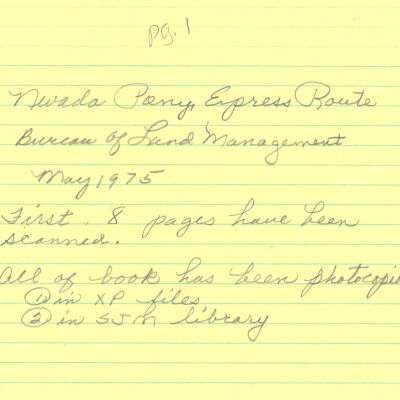 pg. 1
Nevada Pony Express Route
Bureau of Land Management
May 1975
First 8 pages have been
scanned.
All of book has been photocopie
① in XP files
② in SJM library